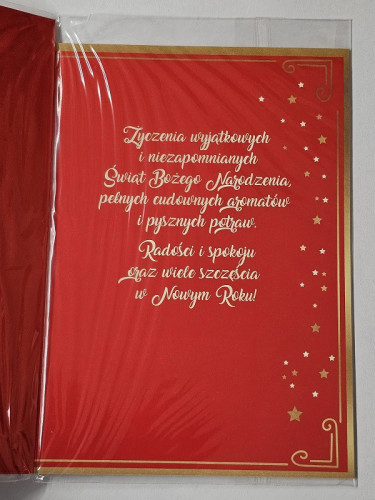 Życzenia wyjątkowych
i niezapomnianych
Świąt Bożego Narodzenia,
pełnych cudownych aromatów
i pysznych potraw.
Radości i spokoju
oraz wiele szczęścia
w Nowym Roku!